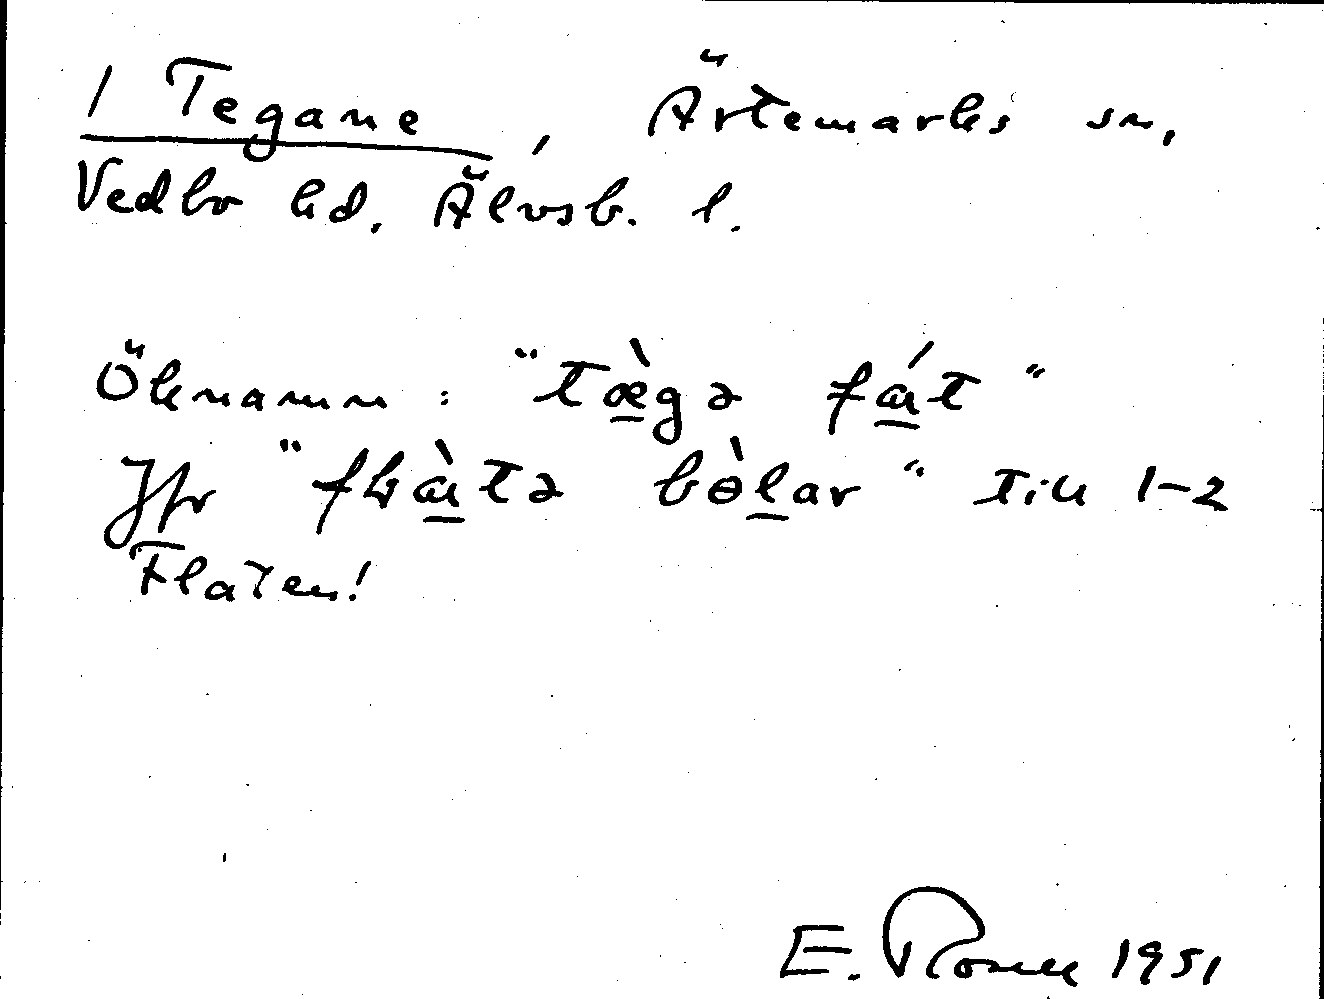 1 Tegane, Ärtemarks sn,
Vedbo hd. Älvsb. l.
Öknamn: "tæ̀gə fát"
Jfr "flàtə bòlar" till 1-2
Flaten!
E. 1951